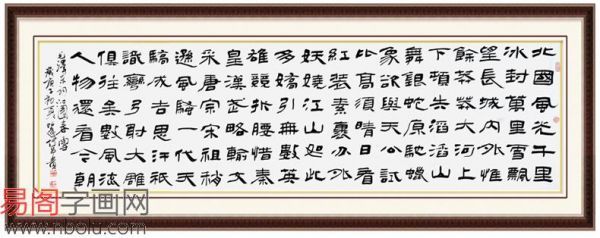 北國風光千里
冰封萬里雪飄
望長城內外惟
餘莽莽大河上
下頓失滔滔山
舞銀蛇原馳蠟
象欲與天公試
比高須晴日看
紅裝素裹分外
妖嬈江山如此
多嬌引無數英
雄競折腰惜秦
皇漢武略輸文
采唐宗宋祖稍
遜風騷一代天
驕成吉思汗祇
識彎弓射大雕
俱往矣數風流
人物還看今朝
毛澤東詞沁園春雪
易阁字画网
www.nbolu.com